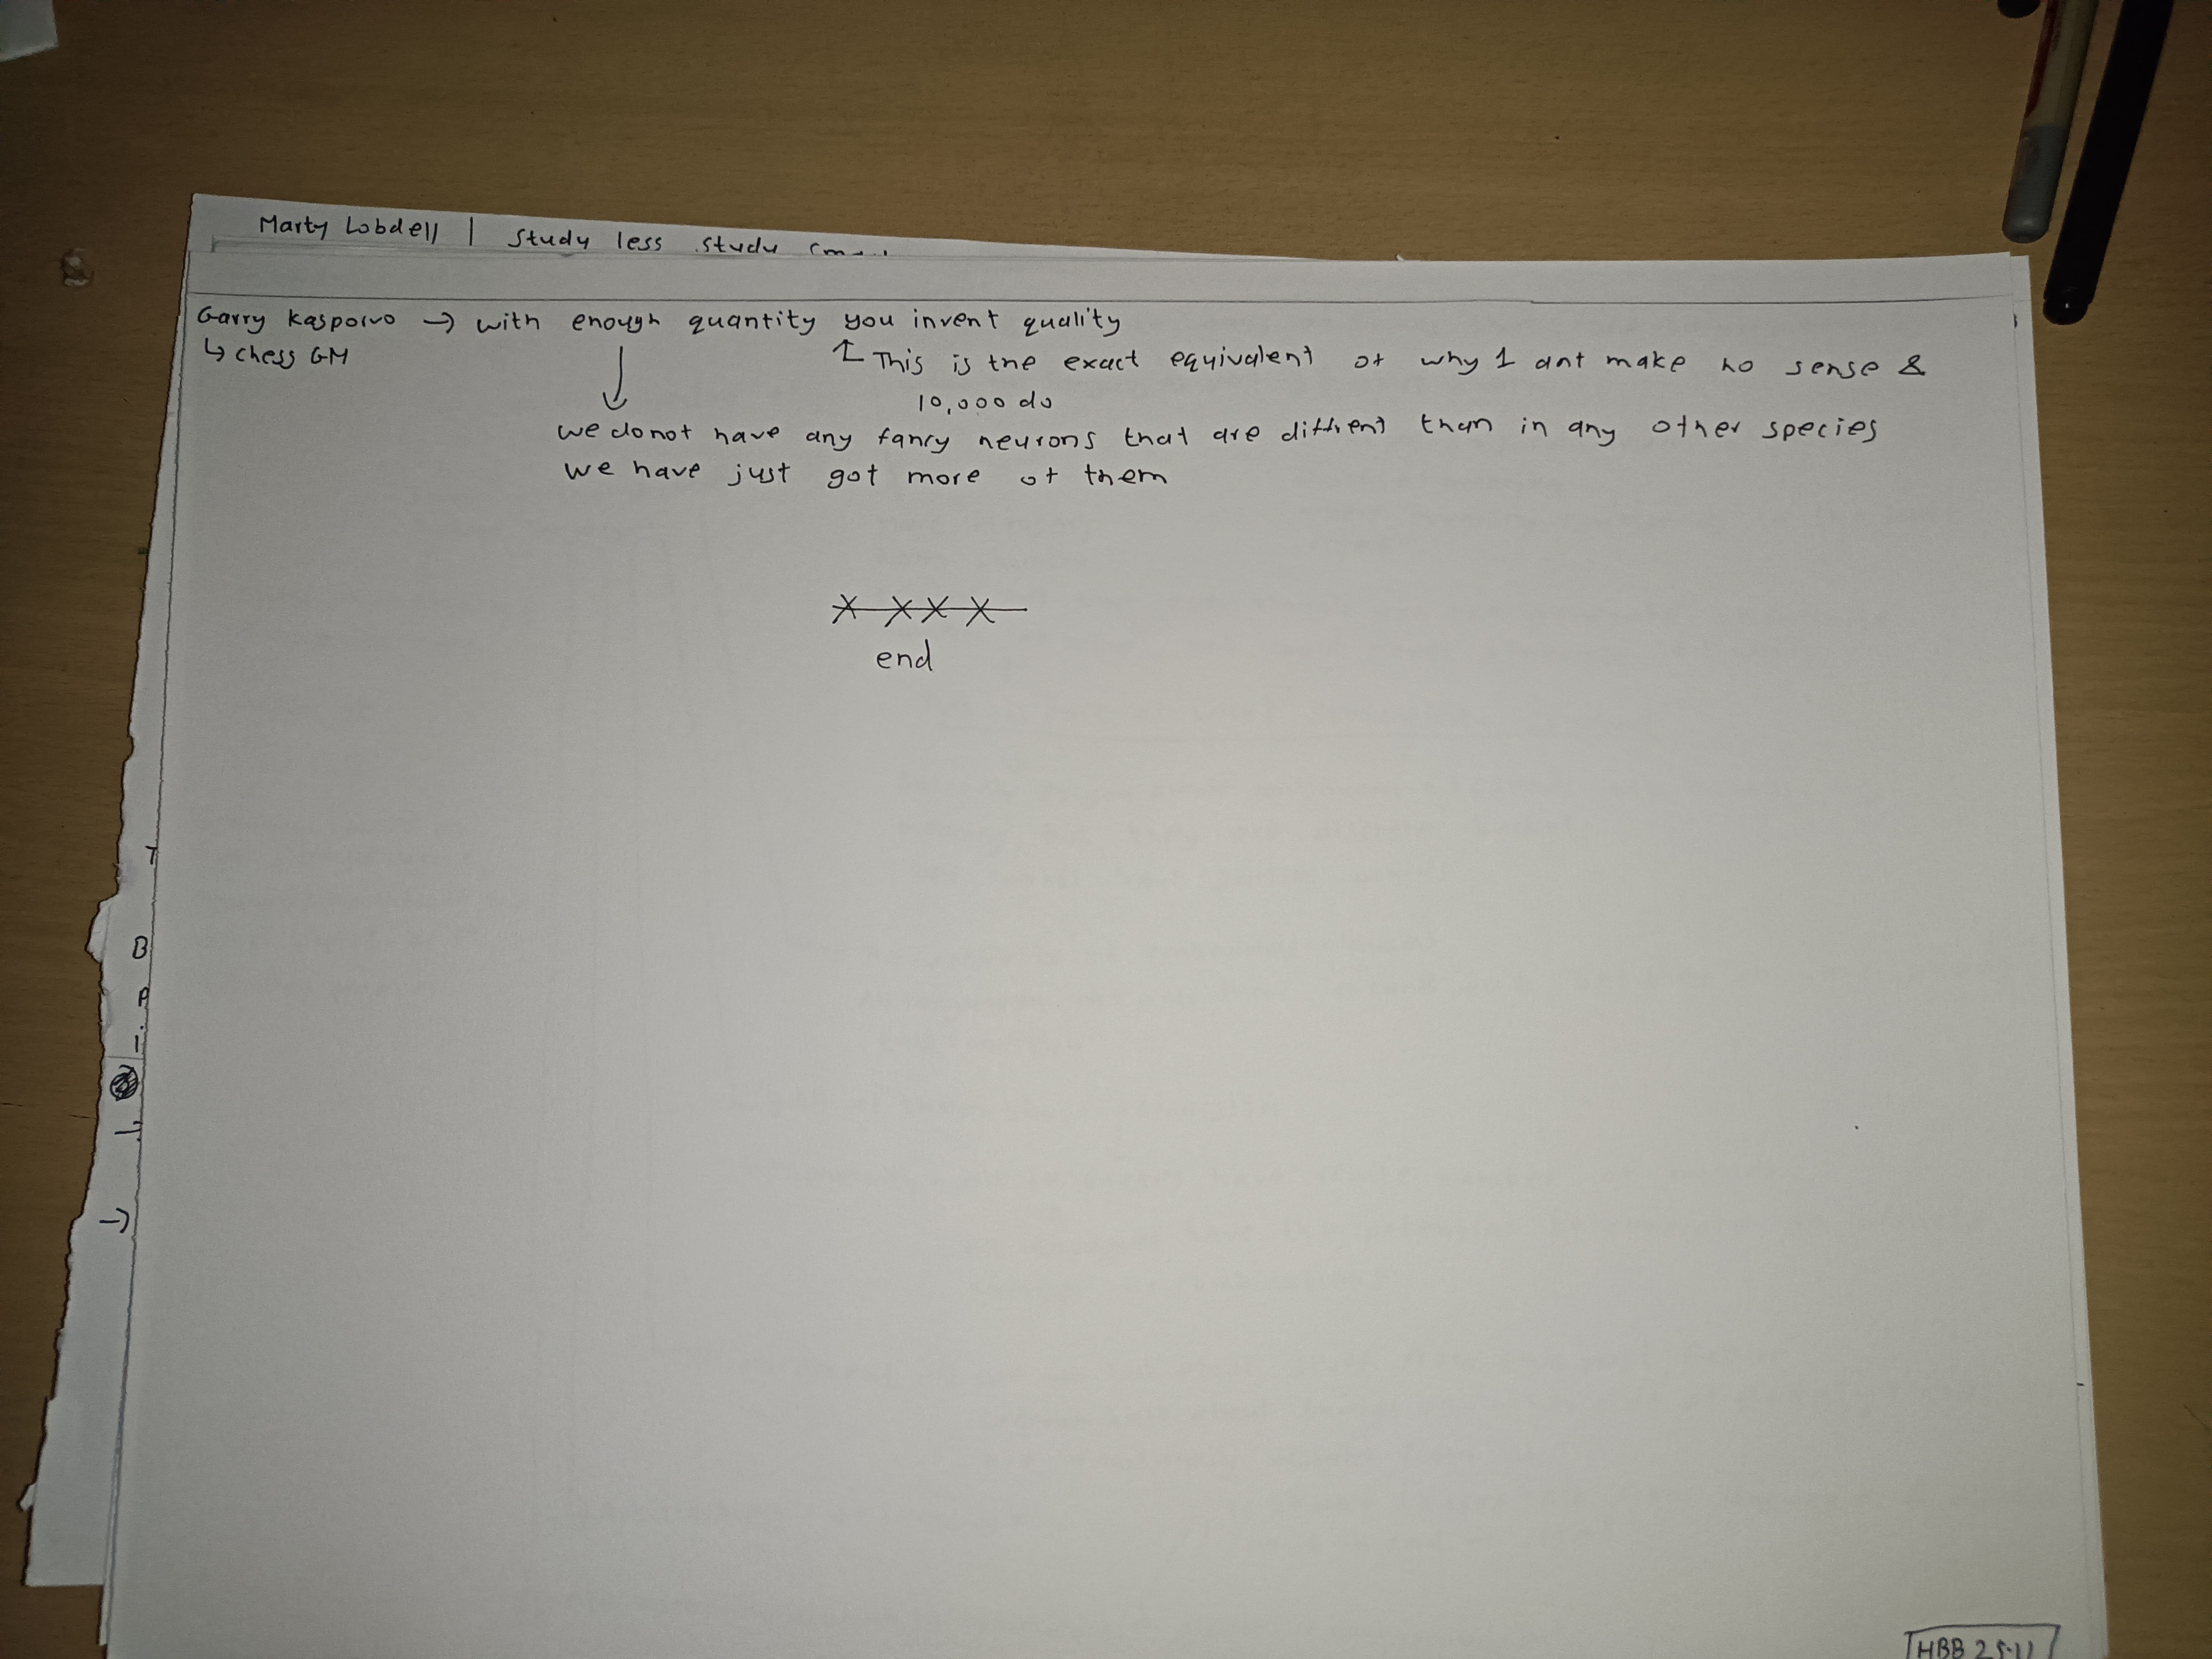 Marty Lobdell | Study less study
Garry Kasporvo → with enough quantity you invent quality
↳ chess GM
This is the exact equivalent of why 1 ant make no sense &
10,000 do
we do not have any fancy neurons that are diffrent than in any other species
we have just got more of them
x x x x
end
T
B
P
HBB 25.11